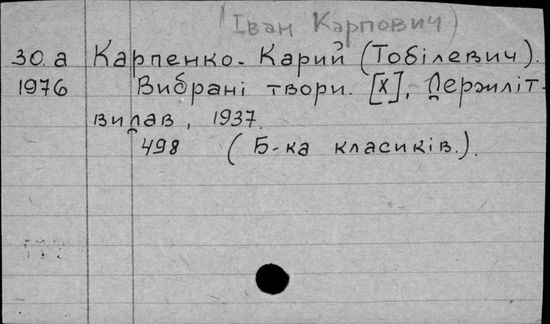 (Іван Карпович)
30.а Карпенко-Карий (Тобілевич).
1976 Вибрані твори. [Х], Держліт-
видав, 1937.
498 (Б-ка класиків.).